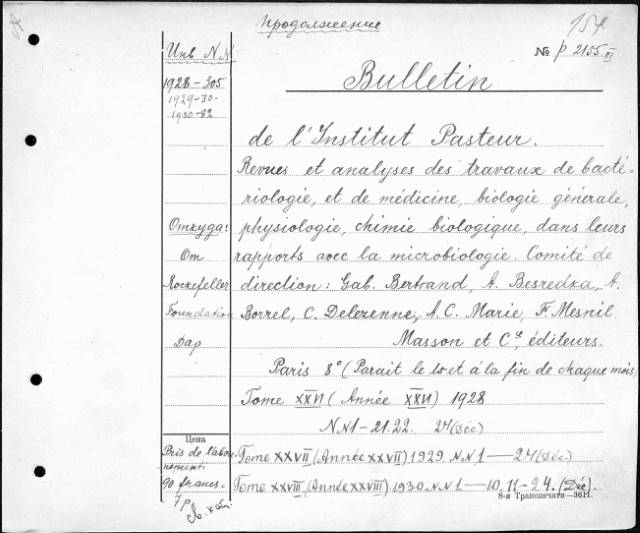 Продолжение
154.
№ p 2155 III
Инв N.N.
1928-305
1929-30.
1930-82
Bulletin
de l'Institut Pasteur.
Revues et analyses des travaux de bacté-
riologie, et de médicine, biologie générale,
Откуда: physiologie, chimie biologique, dans leurs
От rapports avec la microbiologie. Comité de
Rockefeller direction: Gab. Bertrand, A. Besredka, A.
Foundation Borrel, C. Delezenne, A.C. Marie, F. Mesnil
Дар Masson et Cie, éditeurs.
Paris 8° (Parait le 15 et á la fin de chaque mois)
Tome XXVI (Année XXVI) 1928
N.N1-21.22. 24 (Déc)
Цена
Pris de l'abon- Tome XXVII (Année XXVII) 1929 N.N 1—24 (Déc)
nement:
90 francs. Tome XXVIII (Année XXVIII) 1930 N.N 1—10, 11-24. (Déc).
7 р.
8-я Транспечати—3611.